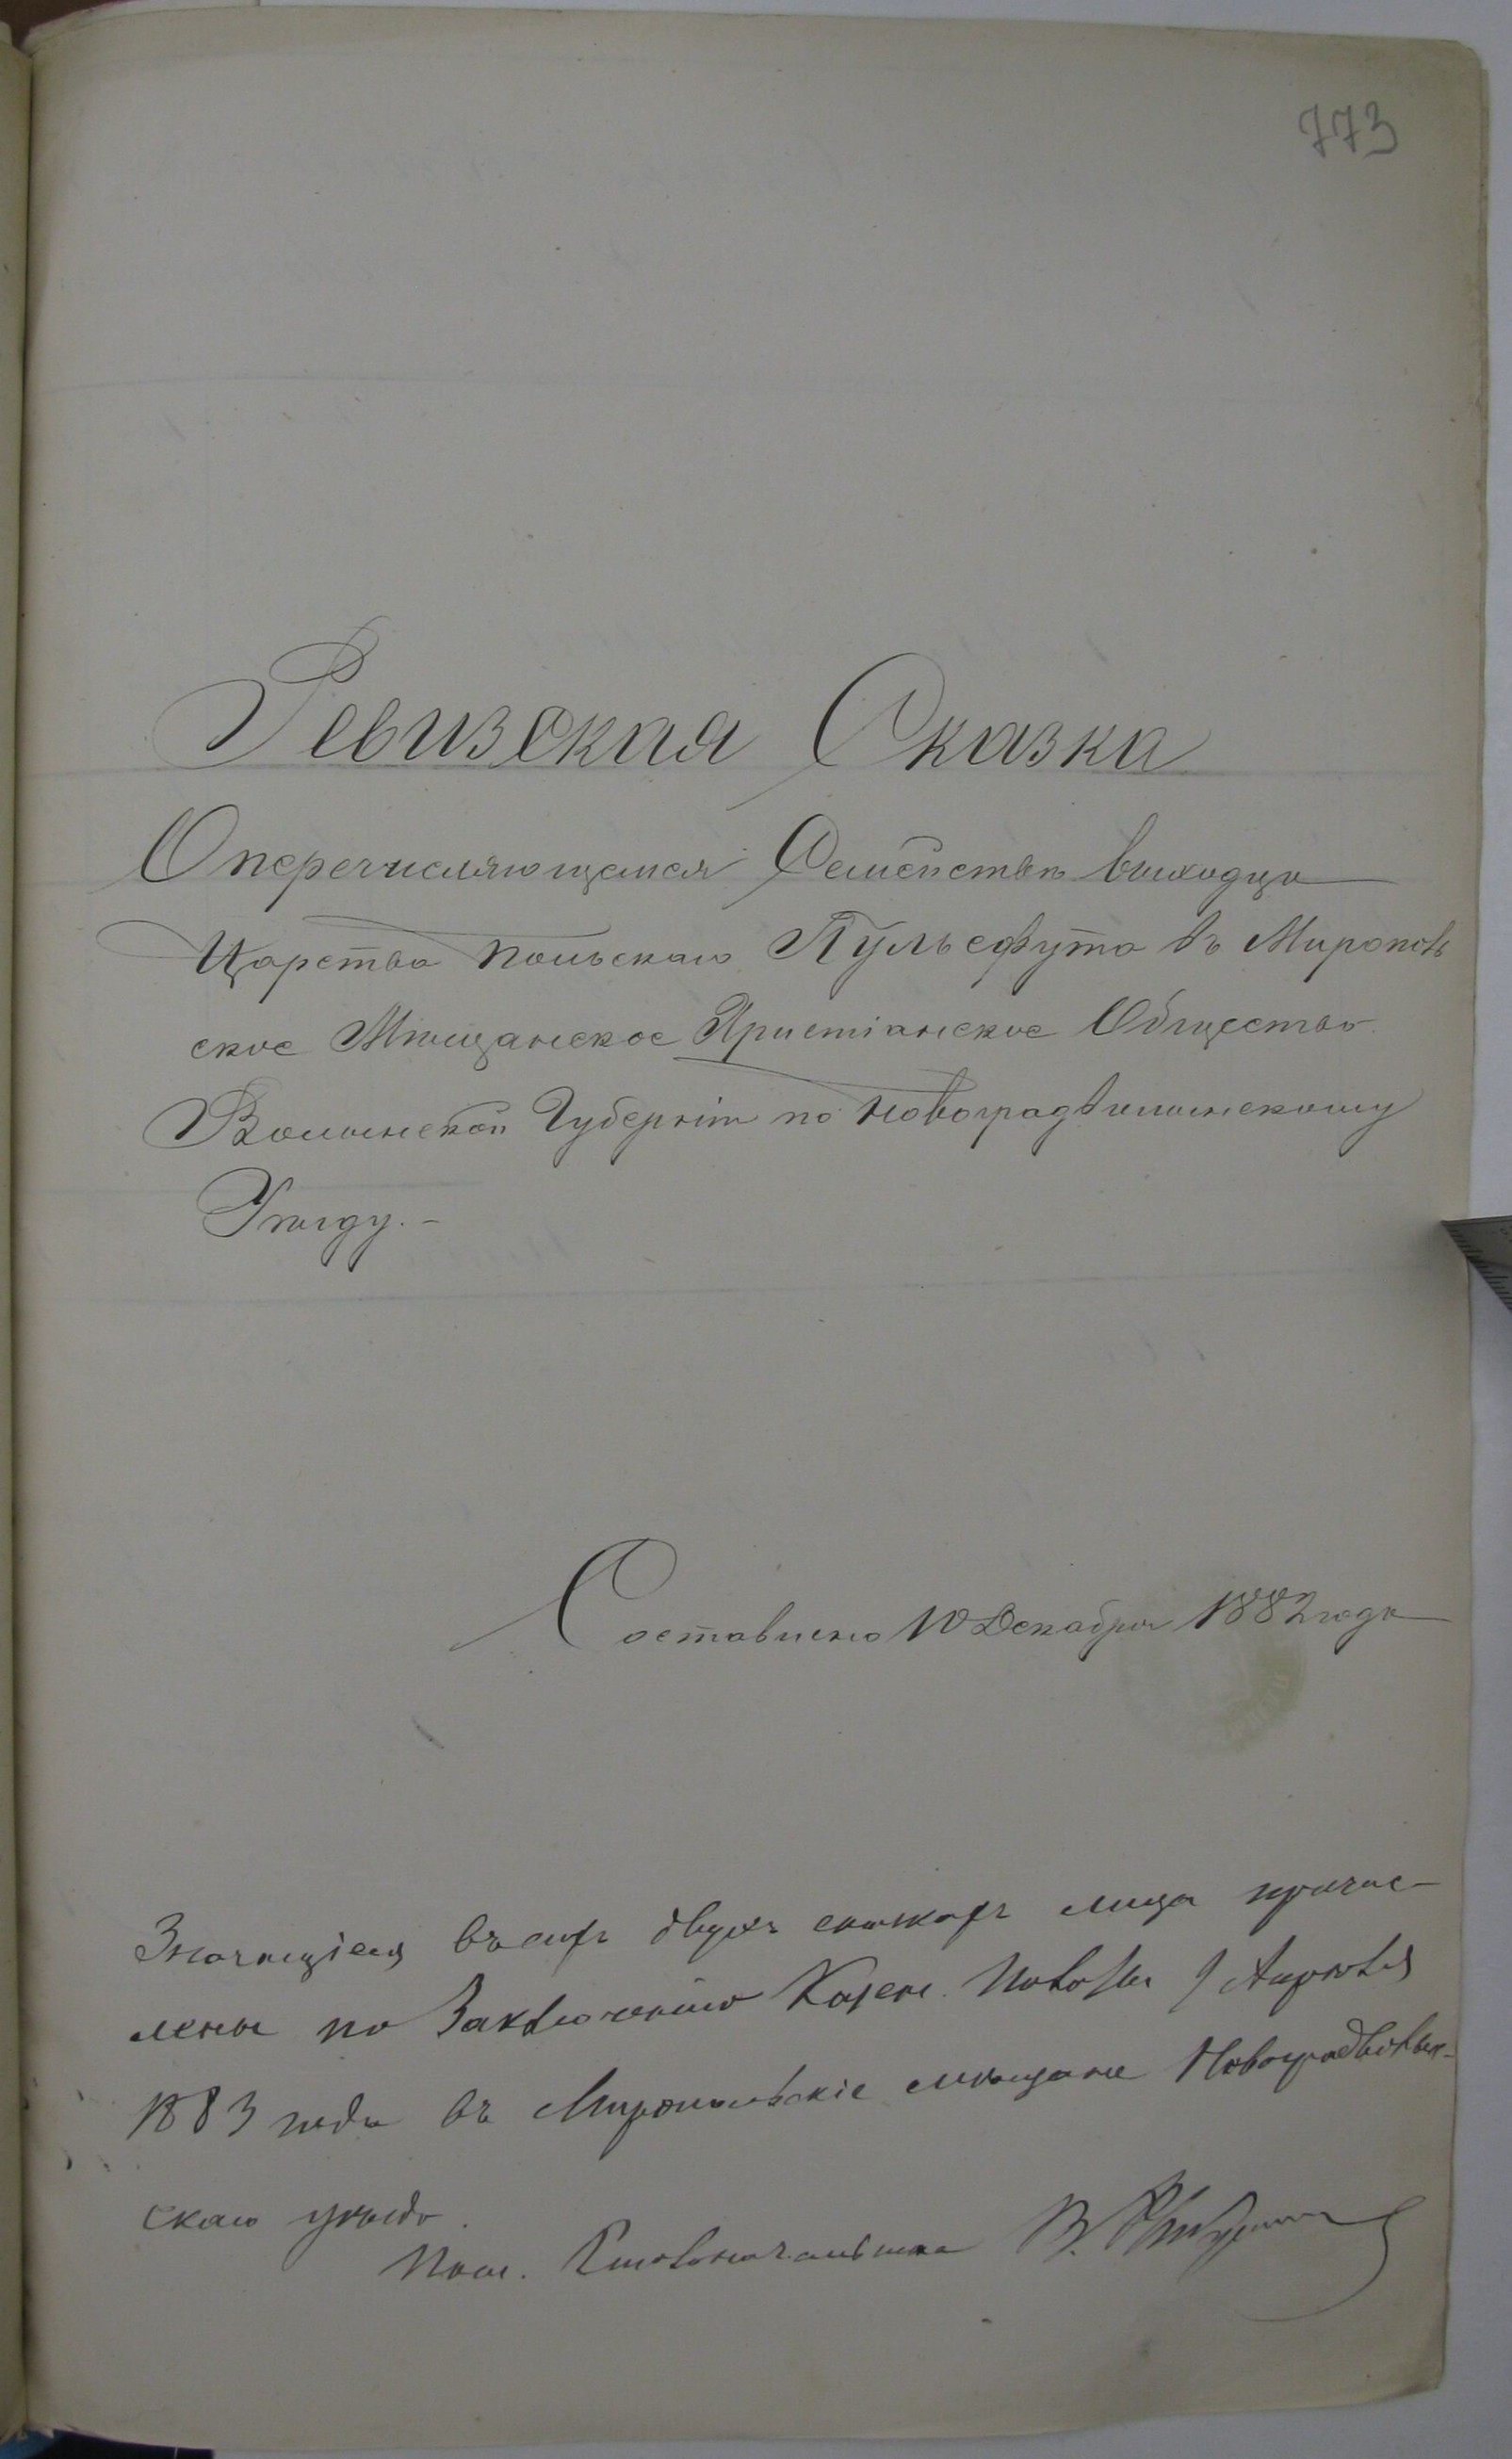 773
Ревизская Сказка
О перечисляющемся Семействѣ выходца
Царства Польскаго Пульсфута въ Мирополь
ское Мѣщанское Христіанское Общество
Волынской Губерніи по Новоградволынскому
Уѣзду. -
Составлено 10 Декабря 1882 года
Значащіеся въ сихъ двухъ сказкахъ лица причис-
лены по Заключенію Казен. Палаты 9 Апрѣля
1883 года въ Миропольскіе мѣщане Новоградволын-
скаго уѣзда.
Пом. Столоначальника В.